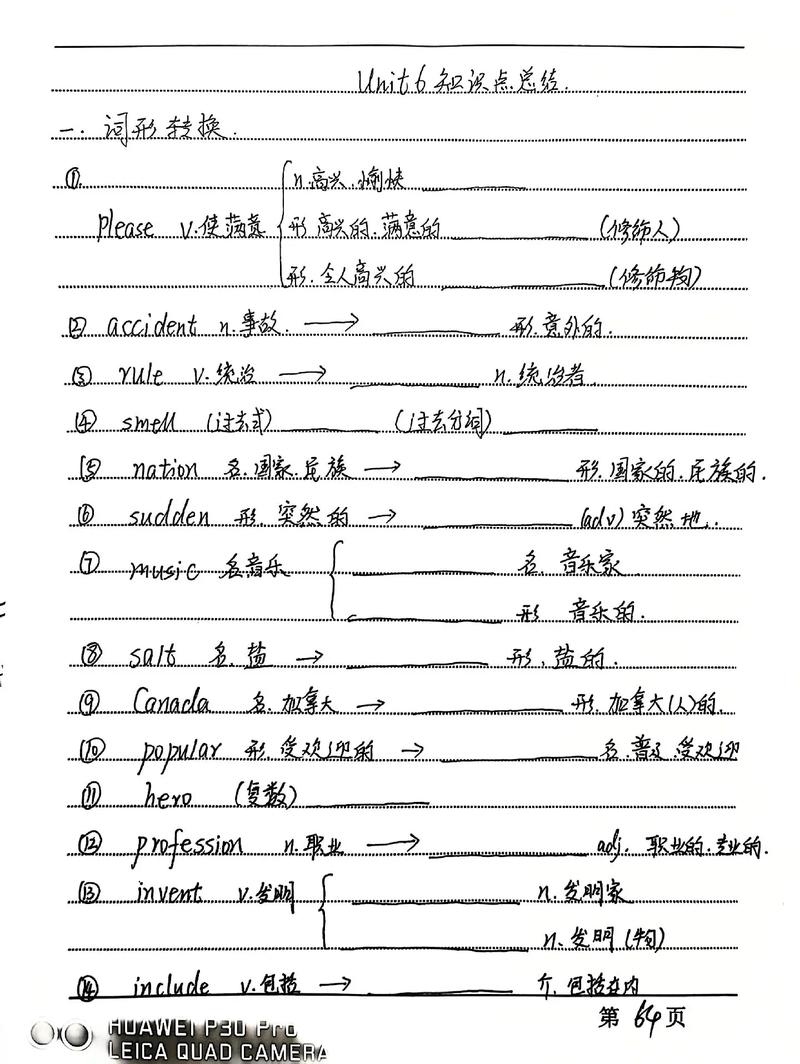 Unit 6 知识点总结.
一. 词形转换.
①.
n.高兴.愉快 ________
please v.使满意 形 高兴的.满意的 ________ (修饰人)
形.令人高兴的 ________ (修饰物)
② accident n.事故. → ________ 形.意外的.
③ rule v.统治 → ________ n.统治者.
④ smell (过去式) ________ (过去分词) ________
⑤ nation 名.国家.民族 → ________ 形.国家的.民族的.
⑥ sudden 形.突然的 → ________ (adv) 突然地.
⑦ music 名音乐 ________ 名.音乐家
________ 形 音乐的.
⑧ salt 名.盐 → ________ 形.盐的.
⑨ Canada 名.加拿大 → ________ 形.加拿大(人)的.
⑩ popular 形.受欢迎的 → ________ 名.普及.受欢迎
⑪ hero (复数) ________
⑫ profession n.职业 → ________ adj. 职业的.专业的.
⑬ invent v.发明 ________ n.发明家
________ n.发明(物)
⑭ include v.包括 → ________ 介.包括在内
第 64 页
HUAWEI P30 Pro
LEICA QUAD CAMERA